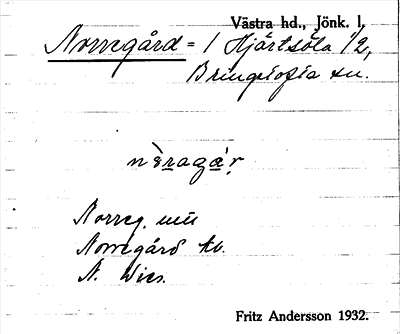 Västra hd., Jönk. l.
Norregård = 1 Hjärtsöla 1/2,
Bringetofta sn.
nòragár
Norreg. uu
Norregård kb.
N. Wies.
Fritz Andersson 1932.